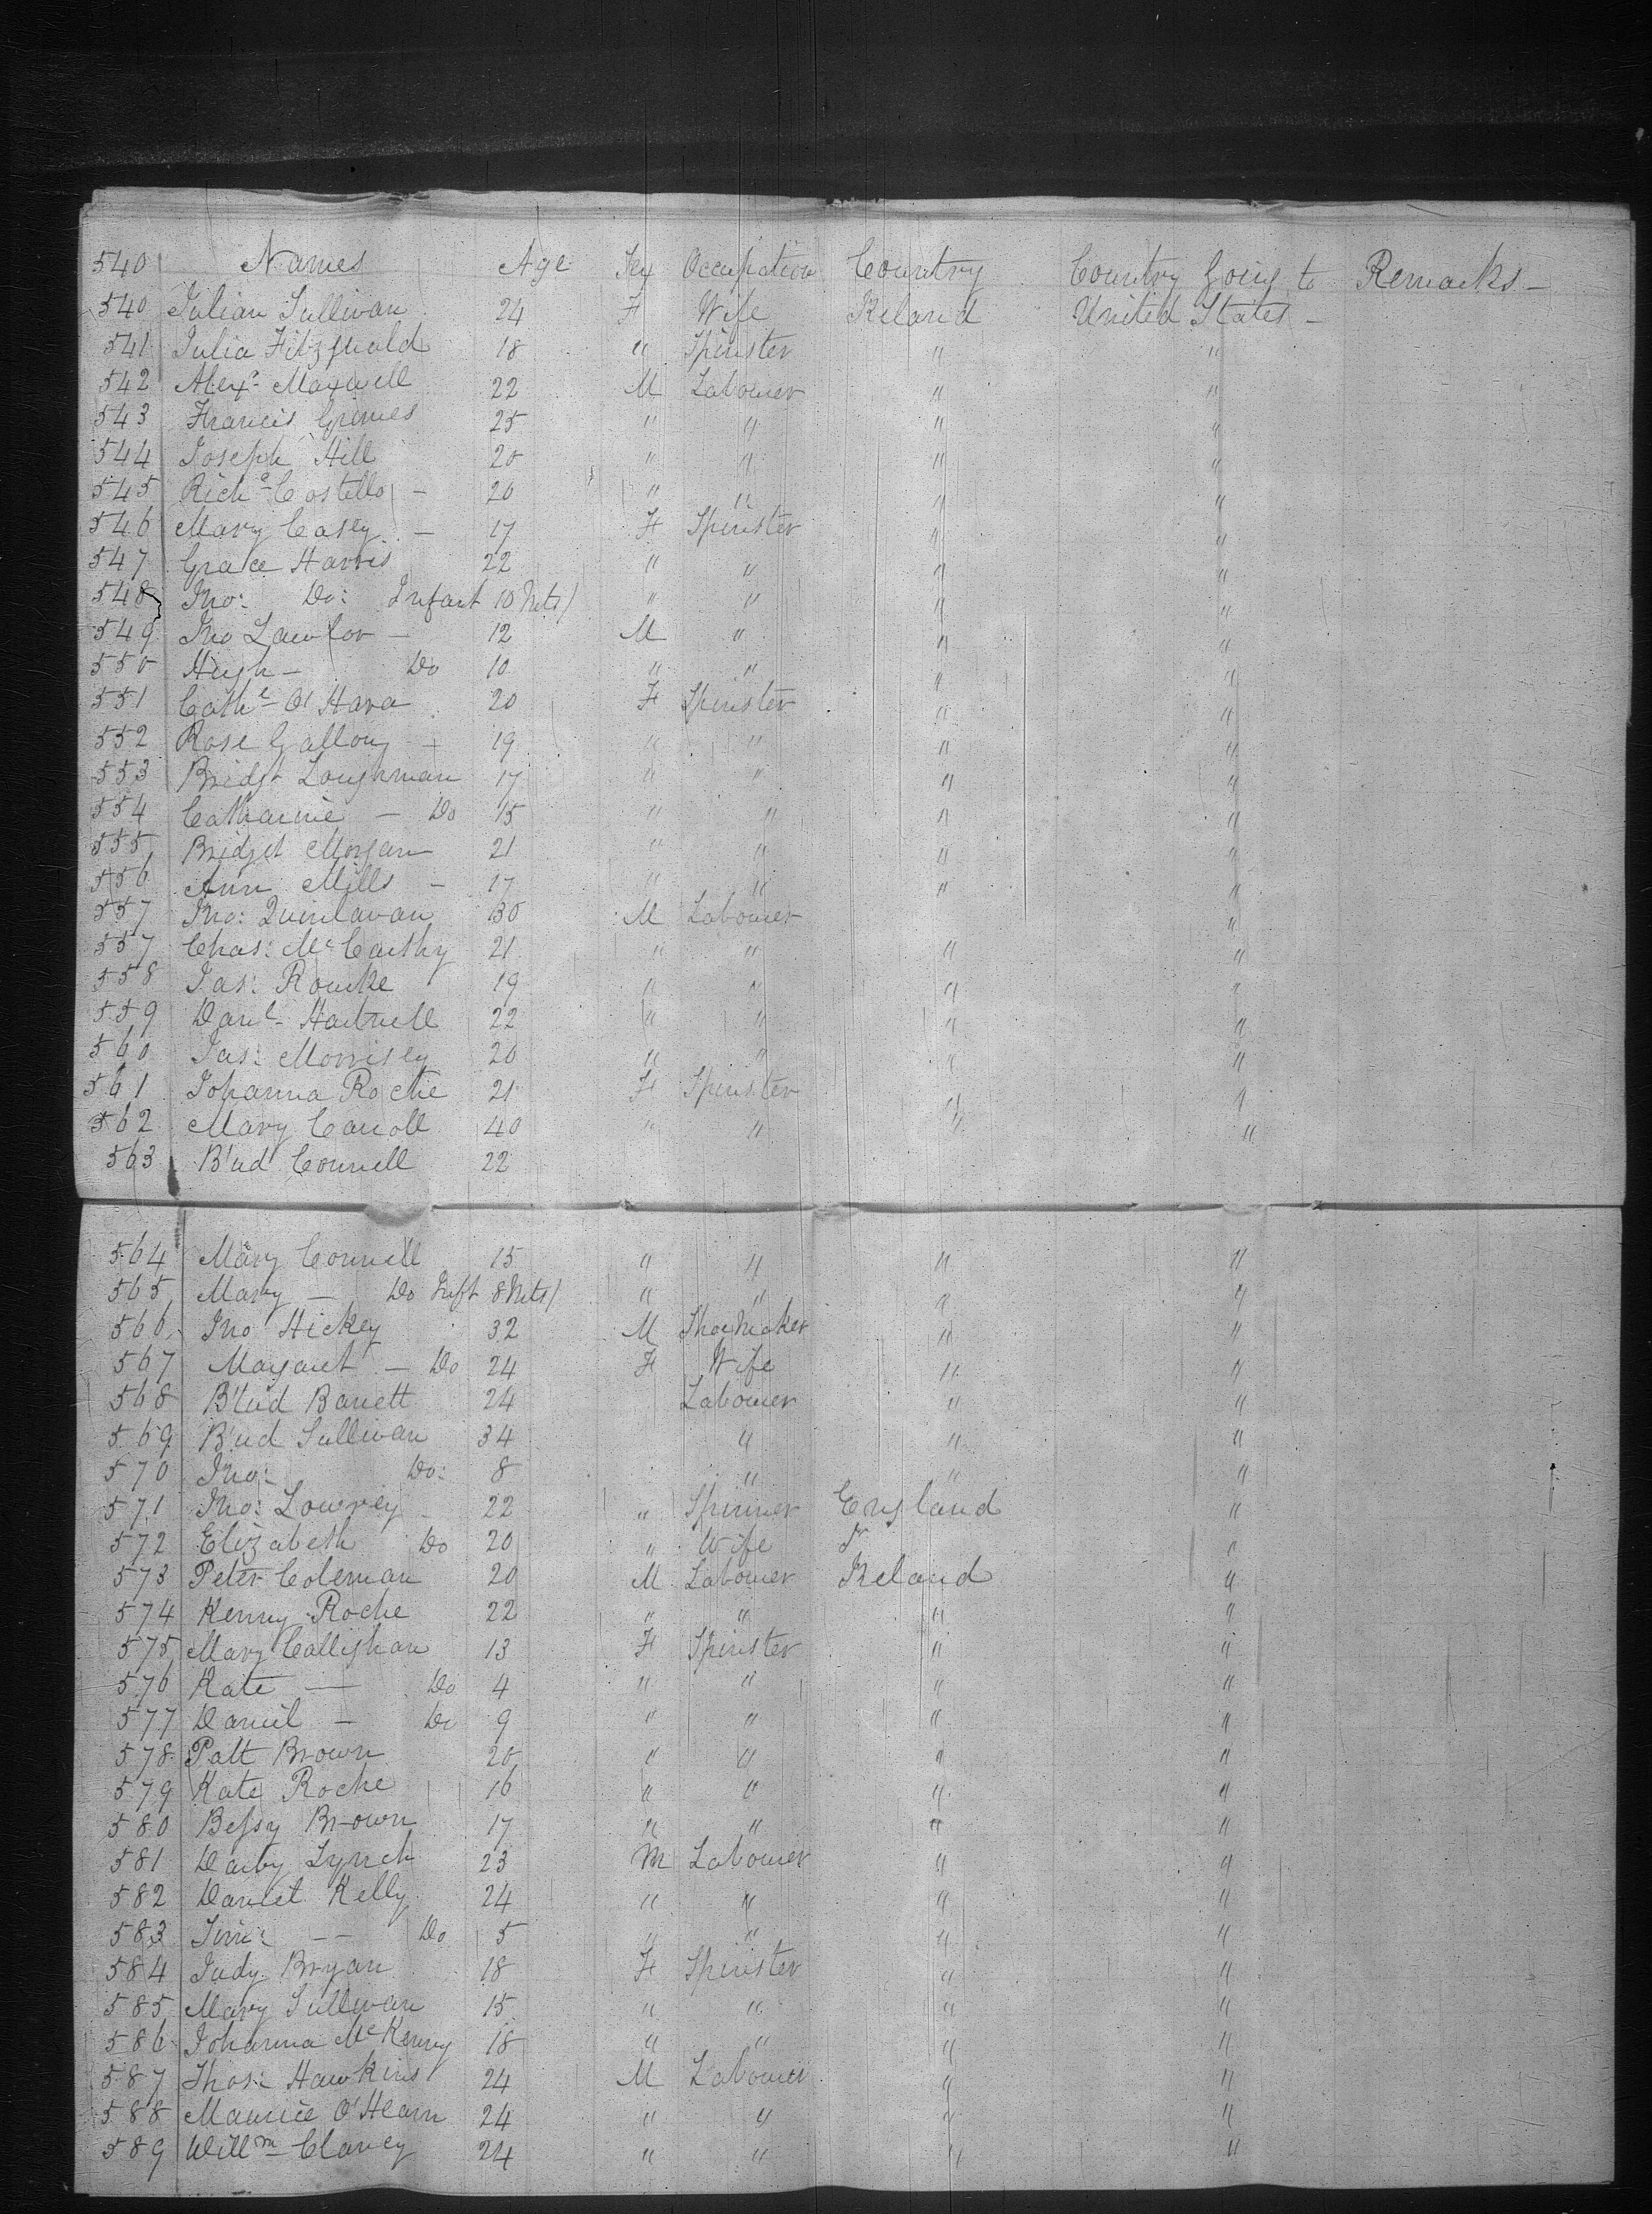 540 Names Age Sex Occupation Country Country Going to Remarks -
540 Julian Sullivan 24 F Wife Ireland United States -
541 Julia Fitzgerald 18 " Spinster " "
542 Alexr Maxwell 22 M Labourer " "
543 Francis Grimes 25 " " " "
544 Joseph Hill 20 " " " "
545 Richd Costello - 20 " " " "
546 Mary Casey - 17 F Spinster " "
547 Grace Harris 22 " " " "
548 Jno: Do: Infant 10 Mts/ " " " "
549 Jno Lawlor - 12 M " " "
550 Hugh - Do 10 " " " "
551 Cathe O'Hara 20 F Spinster " "
552 Rose Gallony - 19 " " " "
553 Bridgt Loughman 17 " " " "
554 Catharine - Do 15 " " " "
555 Bridget Morgan 21 " " " "
556 Ann Mills - 17 " " " "
557 Jno: Quinlavan 30 M Labourer "
557 Chas: McCarthy 21 " " " "
558 Jas: Rourke 19 " " " "
559 Danl Hartnell 22 " " " "
560 Jas: Morrisey 20 " " " "
561 Johanna Roche 21 F Spinster " "
562 Mary Carroll 40 " " " "
563 B'ud Connell 22
564 Mary Connell 15 " " " "
565 Mary - Do Inft 8 Mts/ " " " "
566 Jno Hickey 32 M Shoe Maker " "
567 Margaret - Do 24 F Wife " "
568 B'ud Barrett 24 Labourer " "
569 B'ud Sullivan 34 " " "
570 Jno: Do: 8 " " "
571 Jno: Lowrey 22 " Spinner England "
572 Elizabeth Do 20 " Wife "
573 Peter Coleman 20 M Labourer Ireland "
574 Kenny Roche 22 " " " "
575 Mary Callighan 13 F Spinster " "
576 Kate - Do 4 " " " "
577 Daniel - Do 9 " " " "
578 Patt Brown 20 " " " "
579 Kate Roche 16 " " " "
580 Bessy Brown 17 " " " "
581 Darby Lynch 23 M Labourer " "
582 Daniel Kelly 24 " " " "
583 Tim: - - Do 5 " " " "
584 Judy Bryan 18 F Spinster " "
585 Mary Sullivan 15 " " " "
586 Johanna McKenny 18 " " " "
587 Thos: Hawkins 24 M Labourer " "
588 Maurice O'Hearn 24 " " " "
589 Willm Clancy 24 " " " "